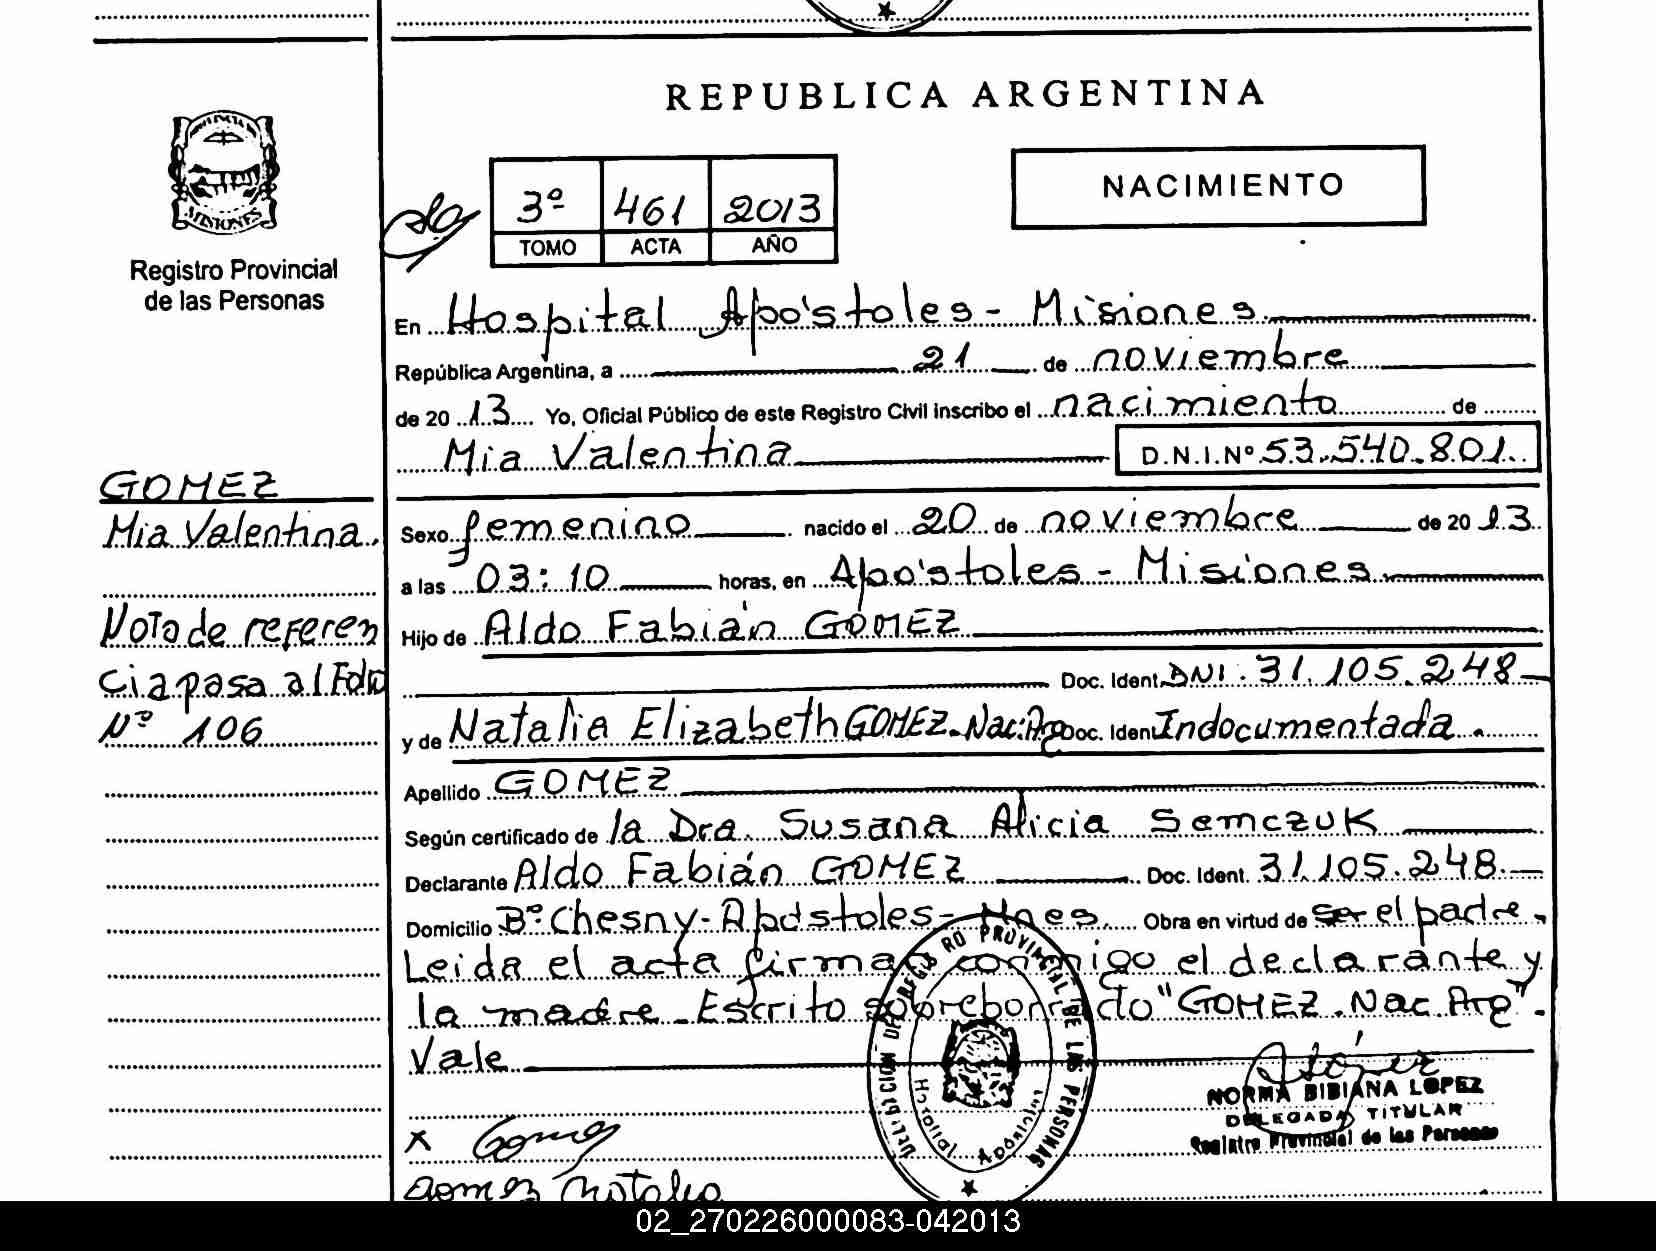 REPUBLICA ARGENTINA
NACIMIENTO
3º 461 2013
TOMO ACTA AÑO
MISIONES
Registro Provincial
de las Personas
En Hospital Apóstoles - Misiones
República Argentina, a 21 de noviembre
de 2013 Yo, Oficial Público de este Registro Civil inscribo el nacimiento de
Mia Valentina D.N.I.Nº 53.540.801.
GOMEZ
Mia Valentina.
Nota de referen
cia pasa al Folio
Nº 106
Sexo femenino nacido el 20 de noviembre de 2013
a las 03:10 horas, en Apóstoles - Misiones
Hijo de Aldo Fabián GOMEZ
Doc. Ident. DNI. 31.105.248
y de Natalia Elizabeth GOMEZ. Nac. Arg Doc. Ident Indocumentada.
Apellido GOMEZ
Según certificado de la Dra. Susana Alicia Semczuk
Declarante Aldo Fabián GOMEZ Doc. Ident. 31.105.248.
Domicilio Bº Chesny - Apóstoles - Mnes. Obra en virtud de ser el padre.
Leida el acta firman conmigo el declarante y
la madre. Escrito sobreborrado "GOMEZ. Nac. Arg".
Vale
REGISTRO PROVINCIAL DE LAS PERSONAS
Hospital Apóstoles
NORMA BIBIANA LOPEZ
DELEGADA TITULAR
Registro Provincial de las Personas
x Gomez
Gomez Natalia
02_270226000083-042013